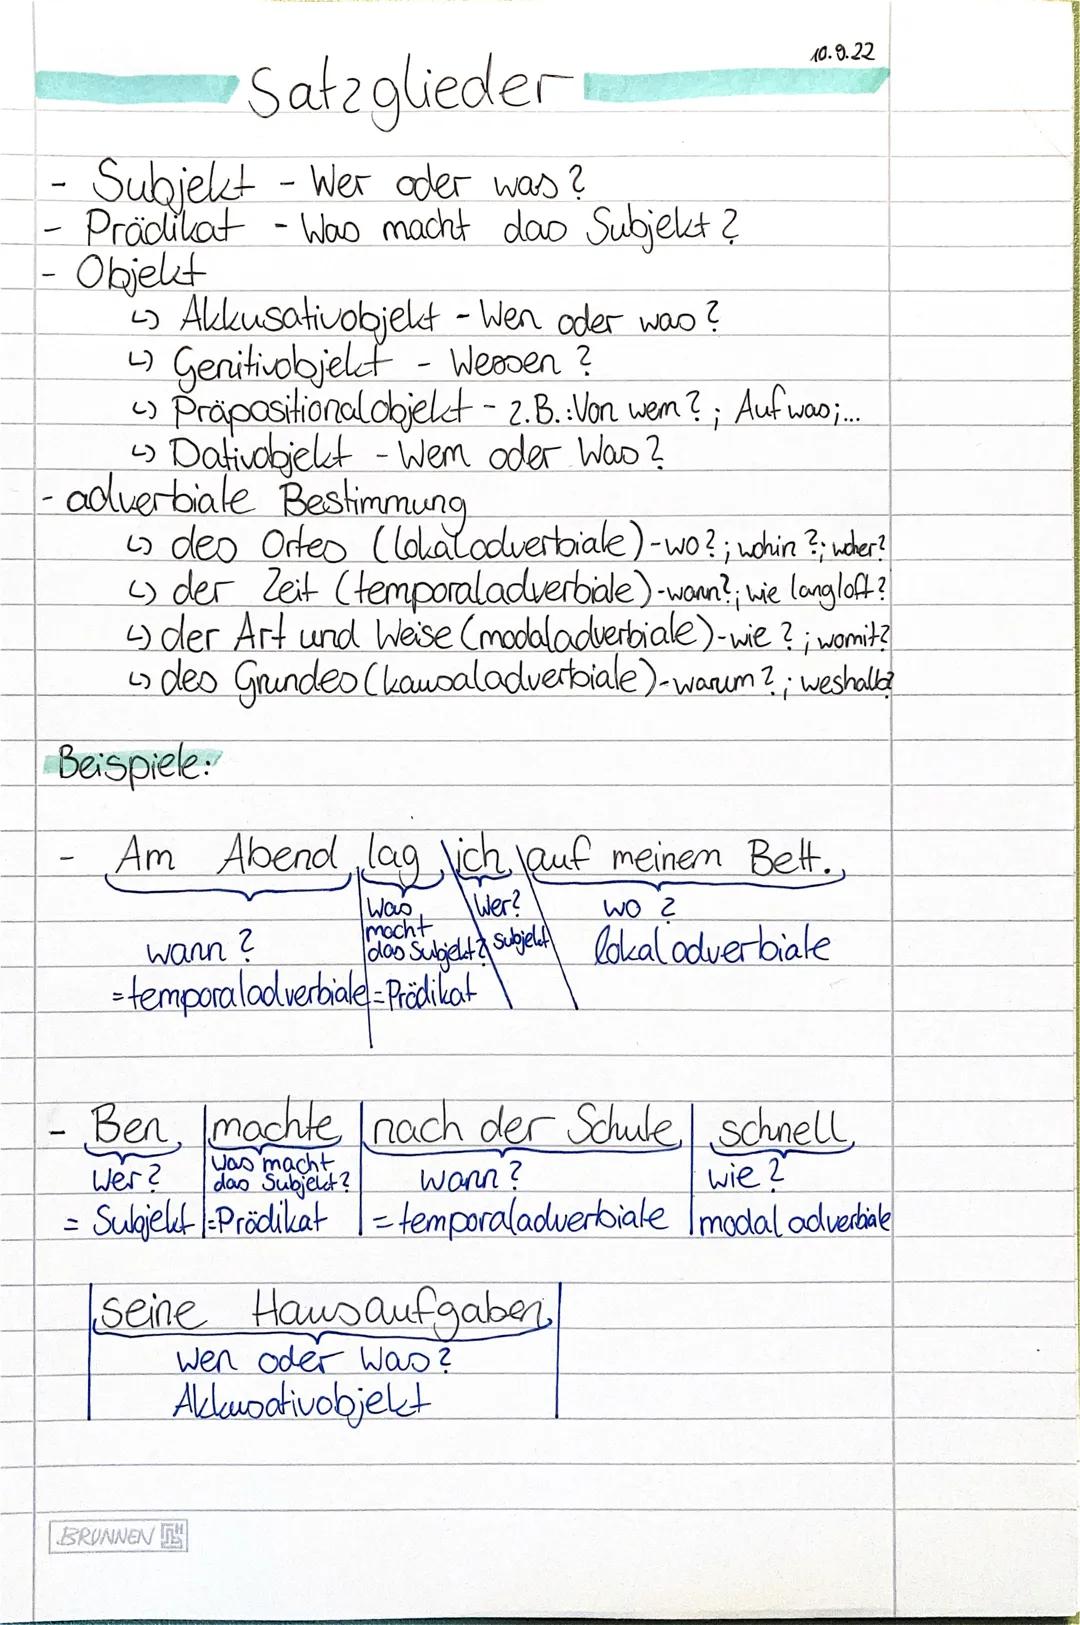 10.9.22
Satzglieder
- Subjekt - Wer oder was?
- Prädikat - Was macht das Subjekt?
- Objekt
↳ Akkusativobjekt - Wen oder was?
↳ Genitivobjekt - Wessen?
↳ Präpositionalobjekt - z.B.: Von wem?; Auf was;...
↳ Dativobjekt - Wem oder Was?
- adverbiale Bestimmung
↳ des Ortes (lokaladverbiale) - wo?; wohin?; woher?
↳ der Zeit (temporaladverbiale) - wann?; wie lang/oft?
↳ der Art und Weise (modaladverbiale) - wie?; womit?
↳ des Grundes (kausaladverbiale) - warum?; weshalb?
Beispiele:
- Am Abend lag ich auf meinem Bett.
Was Wer? wo?
macht
wann? das Subjekt? Subjekt lokaladverbiale
= temporaladverbiale = Prädikat
- Ben machte nach der Schule schnell
Wer? Was macht wann? wie?
das Subjekt?
= Subjekt = Prädikat = temporaladverbiale modaladverbiale
seine Hausaufgaben
Wen oder Was?
Akkusativobjekt
BRUNNEN